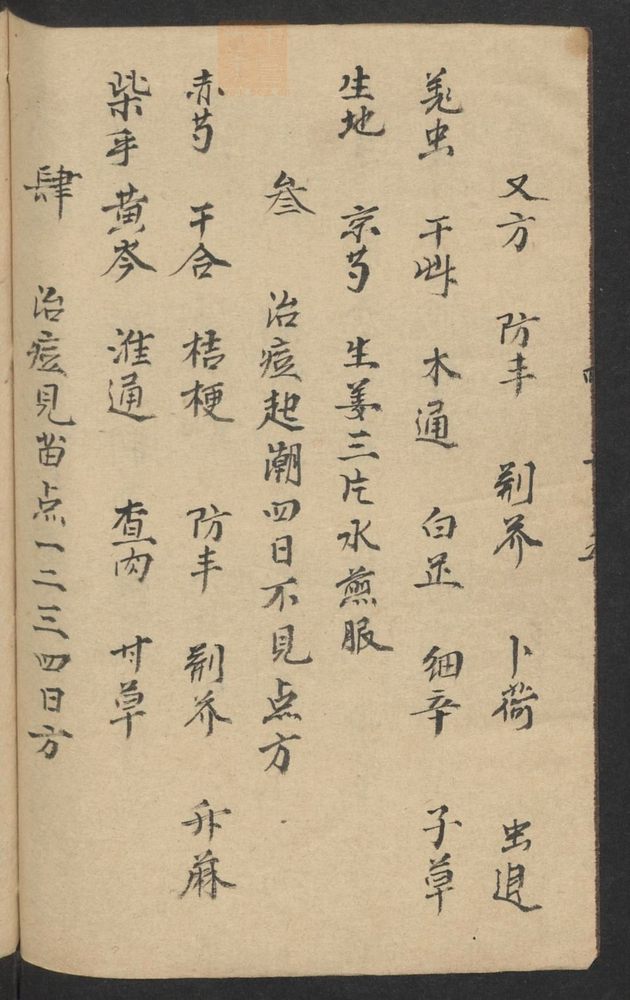 又方 防丰 荆芥 卜荷 虫退
羌虫 干草 木通 白芷 细辛 子草
生地 京芍 生姜三片水煎服
叁 治痘起潮四日不見点方
赤芍 干合 桔梗 防丰 荆芥 升麻
柴乎 黄芩 淮通 查肉 甘草
肆 治痘見苗点一二三四日方